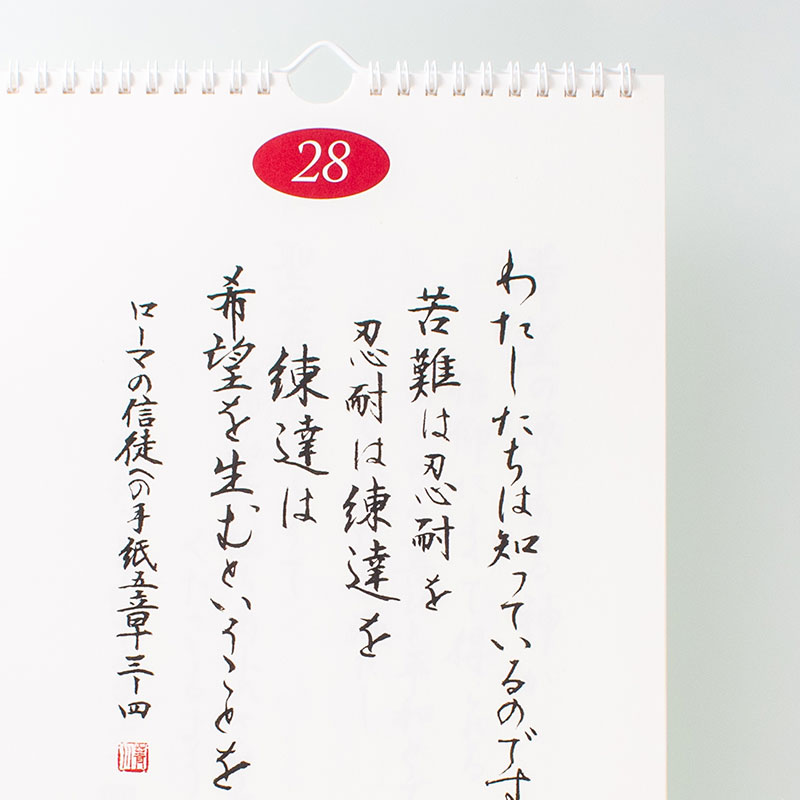 28
わたしたちは知っているのです
苦難は忍耐を
忍耐は練達を
練達は
希望を生むということを
ローマの信徒への手紙五章三-四